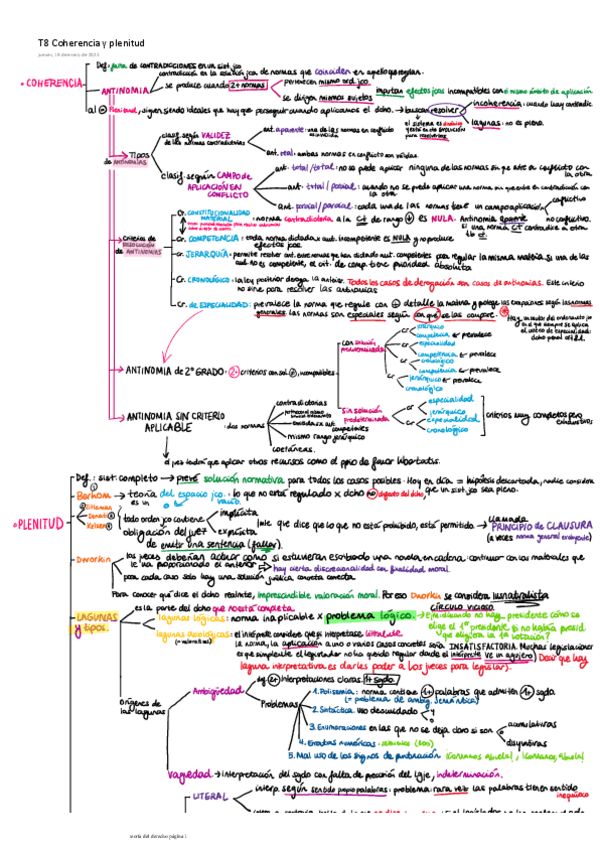 T8 Coherencia y plenitud
• COHERENCIA
Def: falta de CONTRADICCIONES en un sist. jco
ANTINOMIA
contradicción en la solución jca de normas que coinciden en aquello que regulan.
se produce cuando 2+ normas
pertenecen mismo ord. jco.
se dirigen mismos sujetos
imputan efectos jcos incompatibles con el mismo ámbito de aplicación
, siguen siendo ideales que hay que perseguir cuando aplicamos el dcho. → buscan resolver
incoherencia: cuando hay contradic.
lagunas: no es pleno.
el sistema es dinámico
Tipos de ANTINOMIAS
clasif. según VALIDEZ de las normas contradictorias
ant. aparente: una de las normas en conflicto es inválida
ant. real: ambas normas en conflicto son válidas
clasif. según CAMPO DE APLICACIÓN EN CONFLICTO
ant. total/total: no se puede aplicar ninguna de las normas sin que entre en conflicto con la otra.
ant. total/parcial: cuando no se puede aplicar una norma sin que entre en contradicción con la otra.
ant. parcial/parcial: cada una de las normas tiene un campo aplicación
conflictivo
no conflictivo.
criterios de RESOLUCIÓN DE ANTINOMIAS
Cr. CONSTITUCIONALIDAD MATERIAL
: norma contradictoria a la CE de rango + es NULA. Antinomia aparente
si una norma CE contradice a otra
Cr. COMPETENCIA: toda norma dictada x aut. incompetente es NULA y no produce efectos jcos.
Cr. JERARQUÍA: permite resolver ant. entre normas que han dictado aut. competentes para regular la misma materia. Si una de las aut. no es competente, el crit. de comp. tiene prioridad absoluta
Cr. CRONOLÓGICO: la ley posterior deroga la anterior. Todos los casos de derogación son casos de antinomias. Este criterio no sirve para resolver las antinomias
Cr. de ESPECIALIDAD: prevalece la norma que regule con + detalle la materia y protege las excepciones según las normas generales. Las normas son especiales según con qué se las compare.
ANTINOMIA de 2º GRADO: 2+ criterios con sol. ≠, incompatibles
con solución predeterminada
cr jerárquico
competencia ← prevalece
cr especialidad
competencia ← prevalece
cr cronológico
competencia ← prevalece
cr jerárquico ← prevalece
cronológico
sin solución predeterminada
cr especialidad
jerárquico
cr especialidad
cronológico
criterios muy completos pero exhaustivos
ANTINOMIA SIN CRITERIO APLICABLE
: dos normas
contradictorias
dictadas x aut. competentes
mismo rango jerárquico
coetáneas.
el juez tendrá que aplicar otros recursos como el ppio de favor libertatis.
• PLENITUD
Def.: sist. completo → prevé solución normativa para todos los casos posibles. Hoy en día = hipótesis descartada, nadie considera que un sist. jco sea pleno.
Berbohm → teoría del espacio jco.: lo que no está regulado x dcho no depende del dcho
es un vacío.
Zitelmann
Donati
Kelsen
todo orden jco contiene
implícita
explícita
obligación del juez de emitir una sentencia (fallar).
que dice que lo que no está prohibido, está permitido → llamada PRINCIPIO de CLAUSURA
(a veces norma general excluyente)
Dworkin
los jueces deberían actuar como si estuvieran escribiendo una novela en cadena: continuar con los materiales que le ha proporcionado el anterior → hay cierta discrecionalidad con finalidad moral
para cada caso solo hay una solución jurídica correcta
Para conocer qué dice el dcho realmente, imprescindible valoración moral. Por eso Dworkin se considera iusnaturalista
LAGUNAS y tipos.
es la parte del dcho que no está completa
círculo vicioso
lagunas lógicas: norma inaplicable x problema lógico. → Ej: si no hay presidente cómo se elige el 1º presidente si no había presid que eligiera en 1ª votación?
lagunas axiológicas: el intérprete considere que si interpretase literalmente la norma, la aplicación a uno o varios casos concretos sería INSATISFACTORIA.
laguna interpretativa es darles poder a los jueces para legislar).
Orígenes de las lagunas
Ambigüedad
2+ interpretaciones claras. 1+ sgdo.
Problemas
1. Polisemia: norma contiene 1+ palabras que admiten 1+ sgdo
(= problema de ambig. semántica)
2. Sintáctica: uso descuidado y/o
3. Enumeraciones en las que no se deja claro si son
acumulativas
disyuntivas
4. Erratas numéricas
5. Mal uso de los signos de puntuación
vaguedad → interpretación del sgdo con falta de precisión del lgje, indeterminación.
LITERAL
interp. según sentido propio palabras: problema: rara vez las palabras tienen sentido inequívoco
teoría del derecho página 1